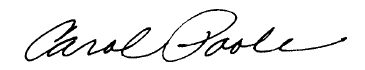 Carol Poole